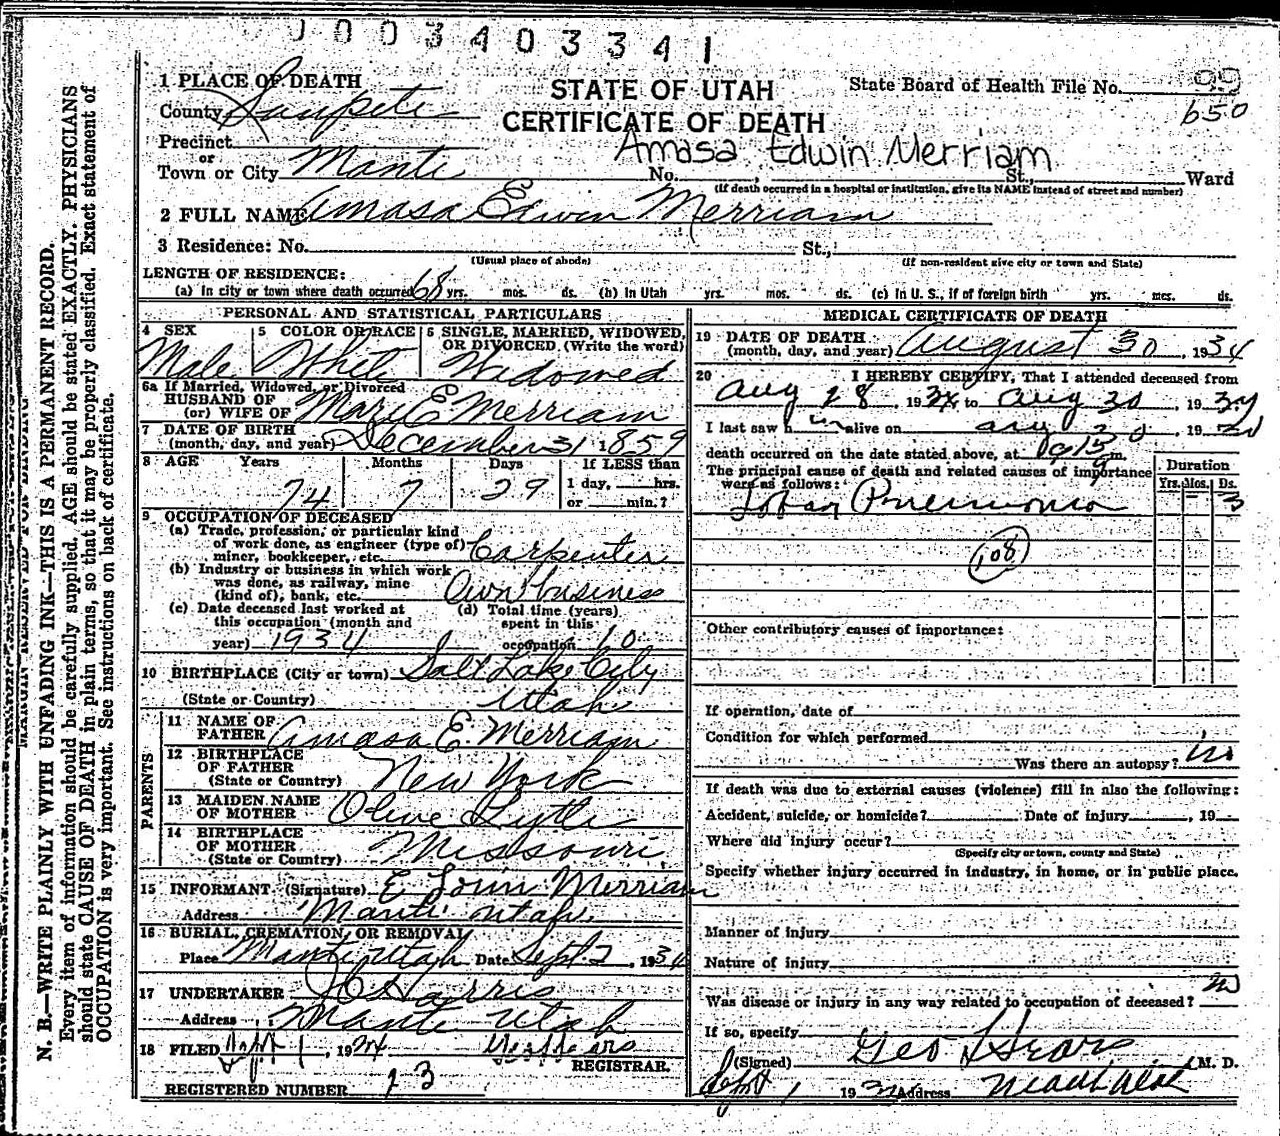 0003403341
1 PLACE OF DEATH
STATE OF UTAH
State Board of Health File No. 99
County Sanpete
650
CERTIFICATE OF DEATH
Precinct
Amasa Edwin Merriam
or
Town or City Manti No. St., Ward
(If death occurred in a hospital or institution, give its NAME instead of street and number)
2 FULL NAME Amasa Edwin Merriam
3 Residence: No. St.,
(Usual place of abode) (If non-resident give city or town and State)
LENGTH OF RESIDENCE:
(a) In city or town where death occurred 68 yrs. mos. ds. (b) In Utah yrs. mos. ds. (c) In U. S., if of foreign birth yrs. mos. ds.
PERSONAL AND STATISTICAL PARTICULARS
4 SEX 5 COLOR OR RACE 6 SINGLE, MARRIED, WIDOWED, OR DIVORCED (Write the word)
Male White Widowed
6a If Married, Widowed, or Divorced
HUSBAND OF
(or) WIFE OF Mary E Merriam
7 DATE OF BIRTH
(month, day, and year) December 31 1859
8 AGE Years Months Days If LESS than
1 day, hrs.
74 7 29 or min.?
9 OCCUPATION OF DECEASED
(a) Trade, profession, or particular kind
of work done, as engineer (type of)
miner, bookkeeper, etc. Carpenter
(b) Industry or business in which work
was done, as railway, mine
(kind of), bank, etc. Own business
(c) Date deceased last worked at
this occupation (month and
year) 1934
(d) Total time (years)
spent in this
occupation 60
10 BIRTHPLACE (City or town) Salt Lake City
(State or Country) Utah
PARENTS
11 NAME OF
FATHER Amasa E. Merriam
12 BIRTHPLACE
OF FATHER
(State or Country) New York
13 MAIDEN NAME
OF MOTHER Olive Lytle
14 BIRTHPLACE
OF MOTHER
(State or Country) Missouri
15 INFORMANT (Signature) E Merriam
Address Manti Utah
16 BURIAL, CREMATION, OR REMOVAL
Place Manti Utah Date Sept. 2, 1934
17 UNDERTAKER Harris
Address Manti Utah
18 FILED Sept 1, 1934
REGISTRAR.
REGISTERED NUMBER 23
MEDICAL CERTIFICATE OF DEATH
19 DATE OF DEATH
(month, day, and year) August 30, 1934
20 I HEREBY CERTIFY, That I attended deceased from
Aug 28, 1934, to Aug 30, 1934
I last saw him alive on Aug 30, 19
death occurred on the date stated above, at m.
The principal cause of death and related causes of importance
were as follows:
Duration
Yrs. Mos. Ds.
Lobar Pneumonia 3
108
Other contributory causes of importance:
If operation, date of
Condition for which performed
Was there an autopsy? no
If death was due to external causes (violence) fill in also the following:
Accident, suicide, or homicide? Date of injury , 19
Where did injury occur?
(Specify city or town, county and State)
Specify whether injury occurred in industry, in home, or in public place.
Manner of injury
Nature of injury
Was disease or injury in any way related to occupation of deceased? no
If so, specify
(Signed) Geo L Sears M. D.
Sept 1 1934 Address Manti Utah
N. B.—WRITE PLAINLY WITH UNFADING INK—THIS IS A PERMANENT RECORD.
Every item of information should be carefully supplied. AGE should be stated EXACTLY. PHYSICIANS
should state CAUSE OF DEATH in plain terms, so that it may be properly classified. Exact statement of
OCCUPATION is very important. See instructions on back of certificate.